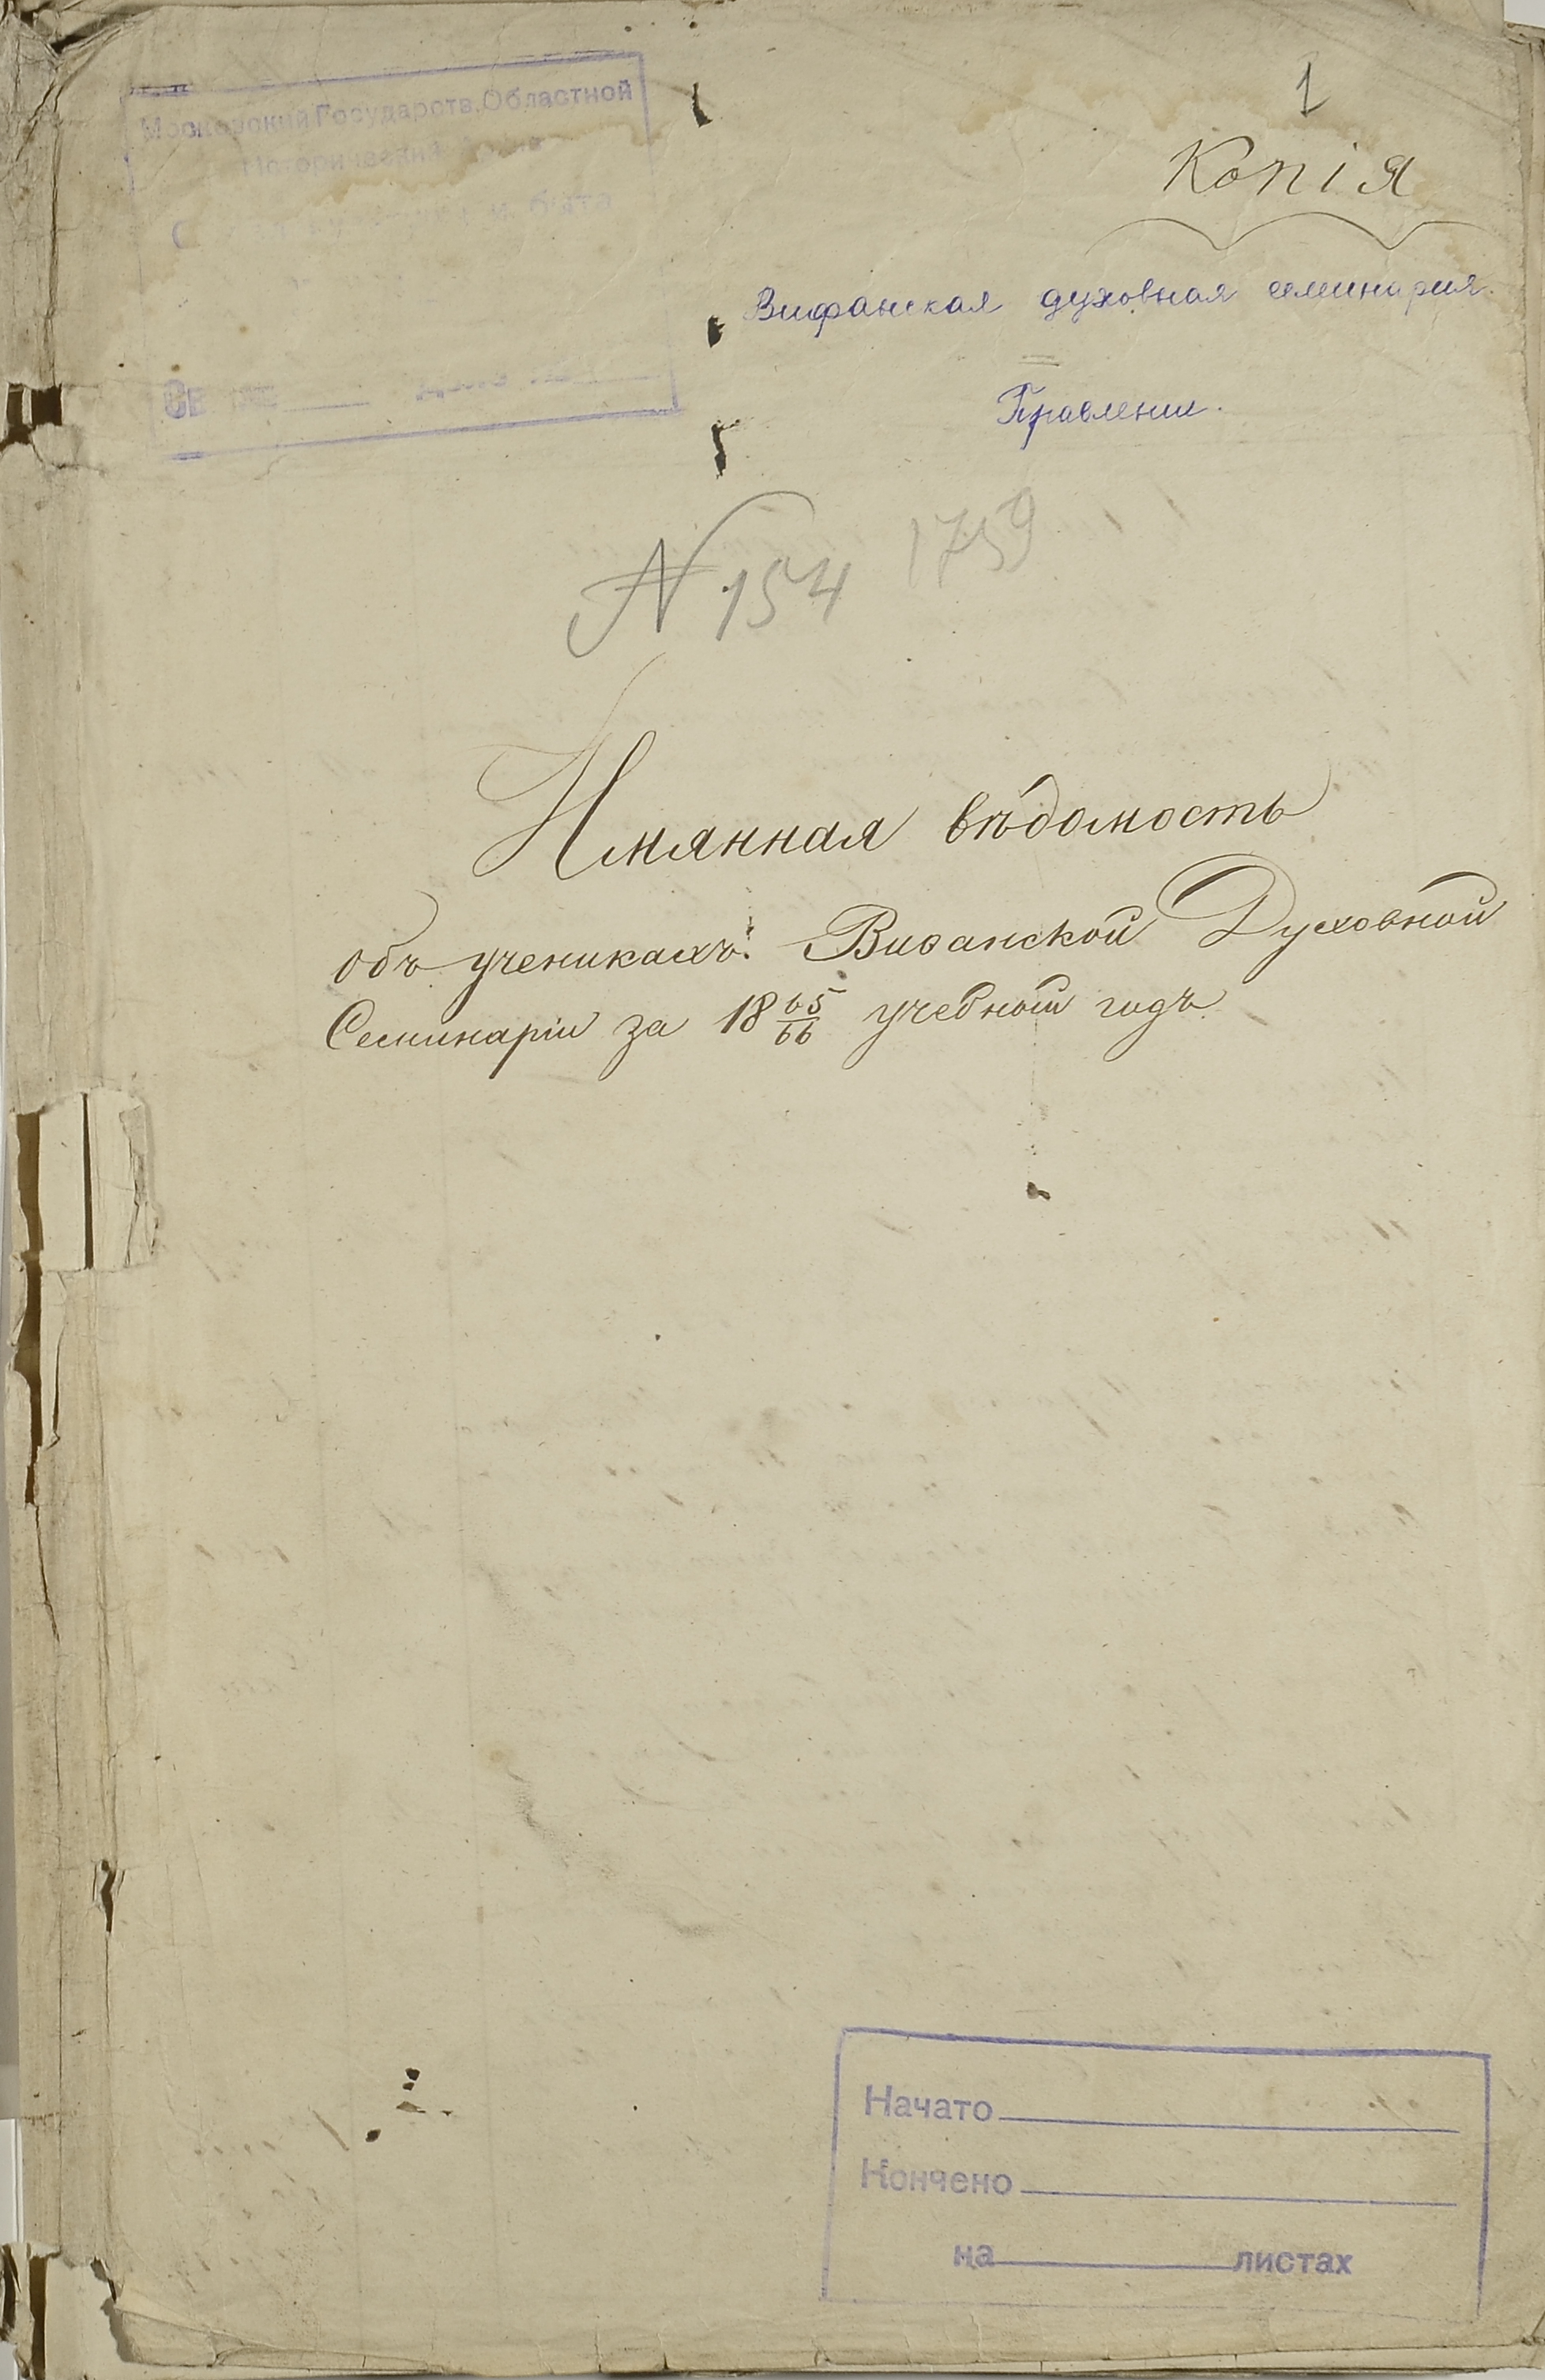 1
Копія
Московский Государств. Областной
Исторический
быта
Вифанская духовная семинария.
Правление.
Св
N 154 1759
Имянная вѣдомость
объ ученикахъ Виѳанской Духовной
Семинаріи за 18 65/66 учебный годъ.
Начато
Кончено
на листах